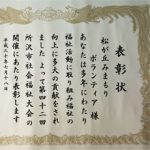 表彰状
松が丘みまもり
ボランティア様
あなたは多年にわたり
福祉活動に取り組み福祉の
向上に多大の貢献をされ
ましたよって第四十一回
所沢市社会福祉大会の
開催にあたり表彰します
平成二十年七月十八日